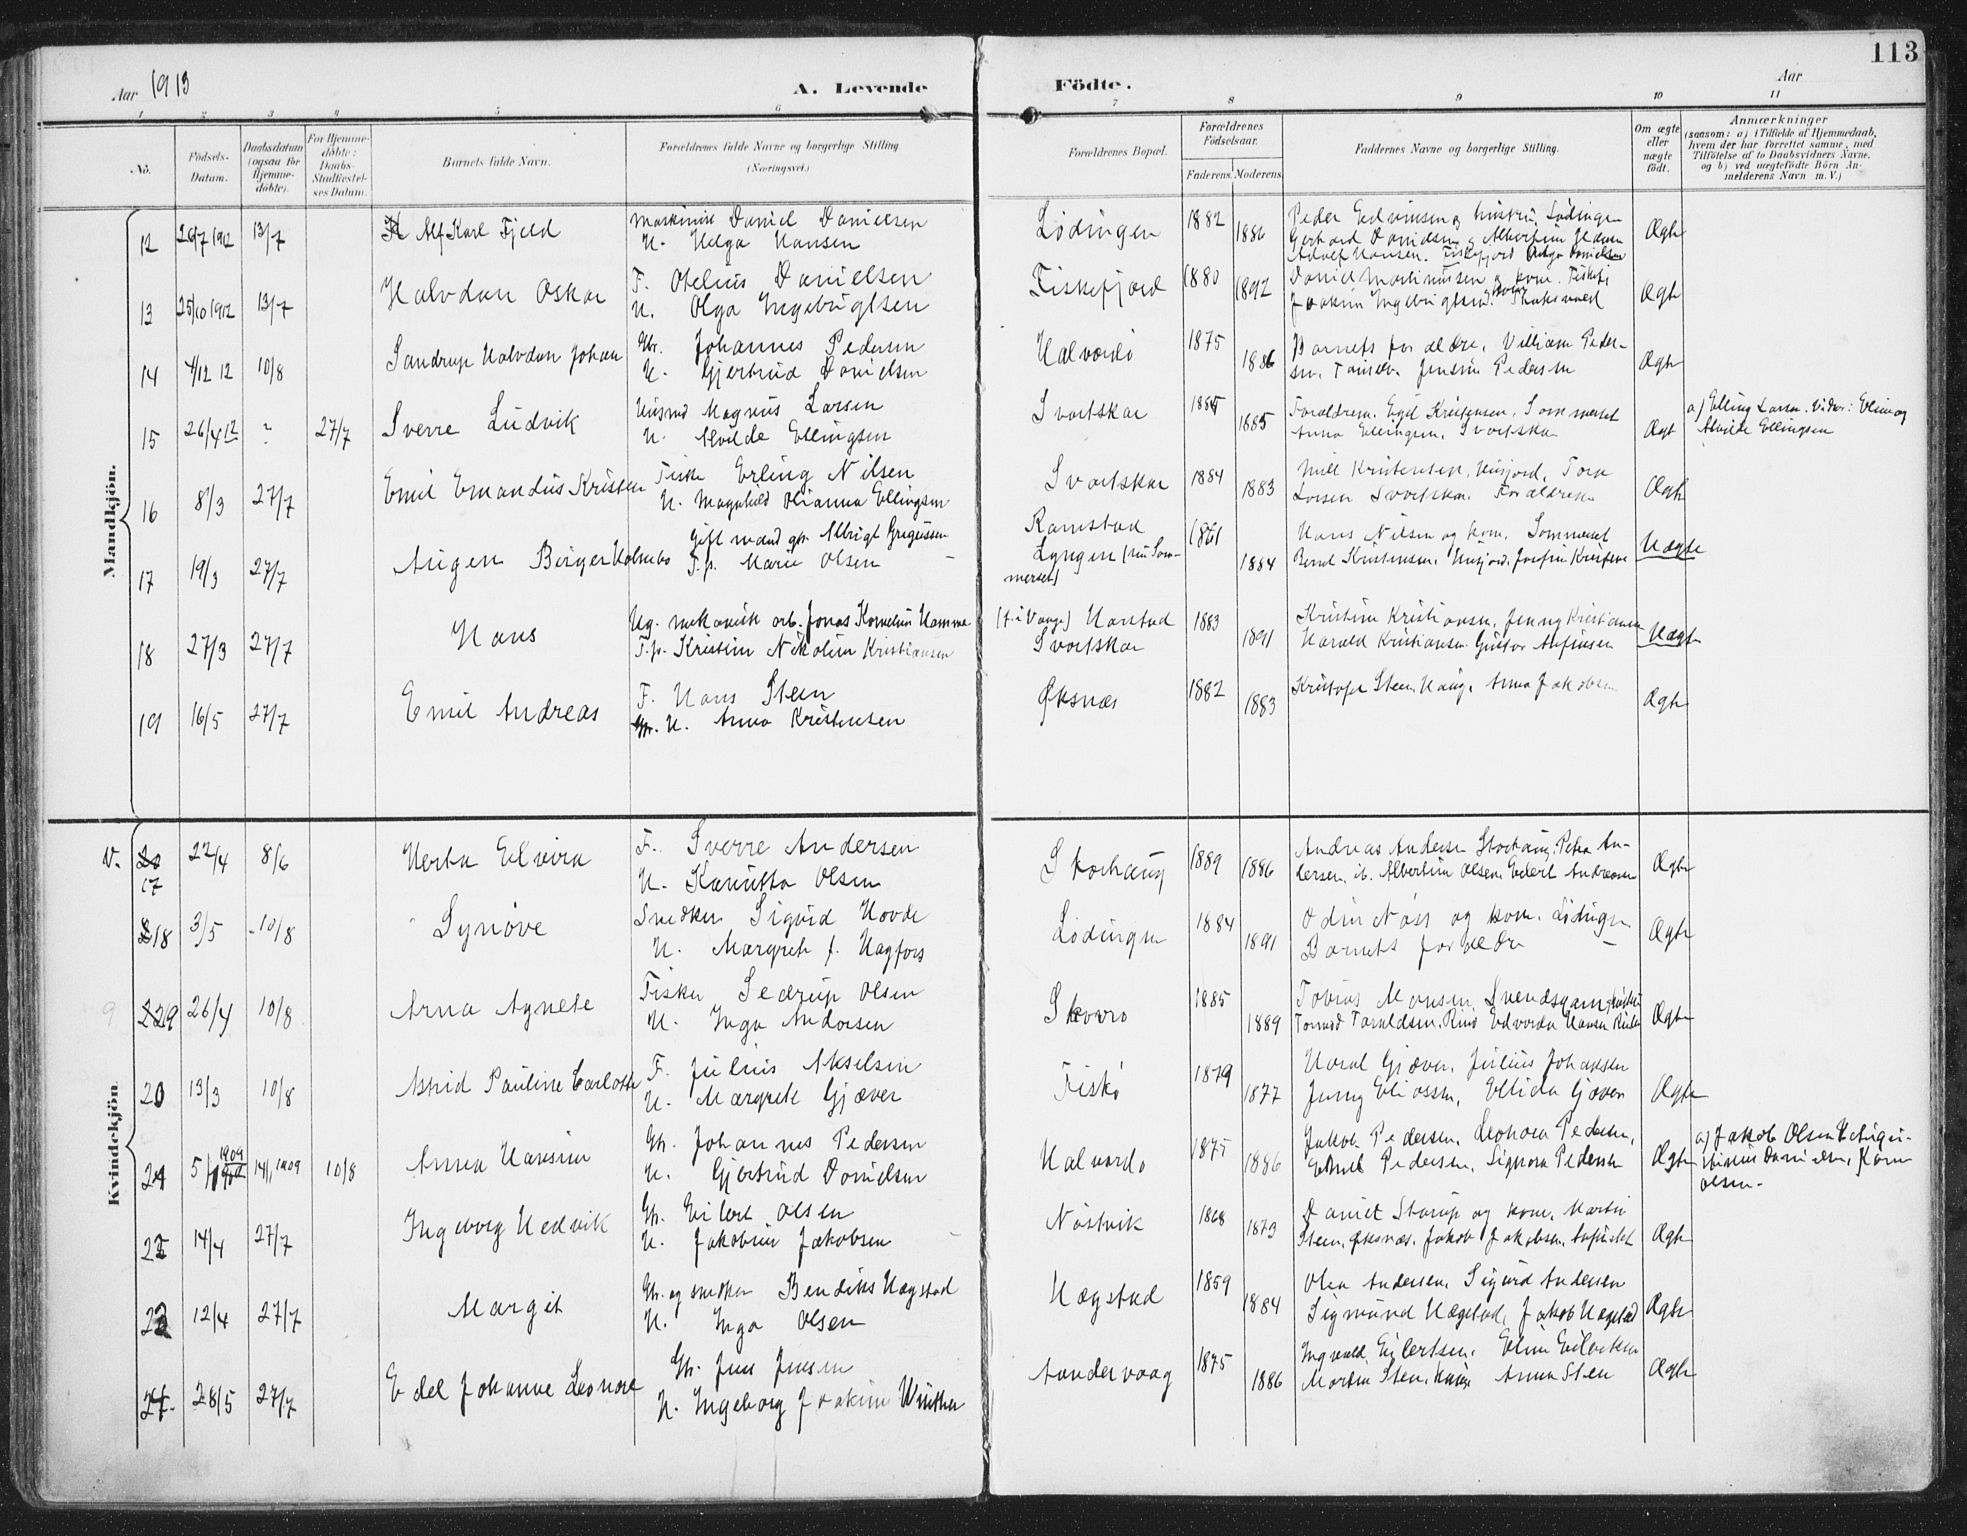 113
Aar 1913
A. Levende
Födte.
Aar
1 2 3 4 5 6 7 8 9 10 11
No.
Födsels-Datum.
Daabsdatum (ogsaa for Hjemme-döbte).
For Hjemme-döbte: Daabs-Stadfæstel-ses Datum.
Barnets fulde Navn.
Forældrenes fulde Navne og borgerlige Stilling. (Næringsvei.)
Forældrenes Bopæl.
Forældrenes Födselsaar.
Faderens. Moderens.
Faddernes Navne og borgerlige Stilling.
Om ægte eller uægte födt.
Anmærkninger
(saasom: a) i Tilfælde af Hjemmedaab,
hvem der har forrettet samme, med
Tilföielse af to Daabsvidners Navne,
og b) ved uægtefödte Börn An-
melderens Navn m. V.)
Mandkjön.
12 26/7 1912 13/7 Alf Karl Fjeld
Maskinist Daniel Danielsen
H. Helga Hansen
Lødingen 1882 1886
Peder Edvinsen og hustru, Lødingen
Ægte
13 25/10 1912 13/7 Halvdan Oskar
F. Otelius Danielsen
H. Olga Ingebrigtsen
Fiskefjord 1880 1892
Daniel Martinussen og kone. Fiskefj
Ægte
14 4/12 12 10/8 Sandrup Halvdan Johan
Gbr. Johannes Pedersen
H. Gjertrud Danielsen
Halvardø 1875 1886
Barnets forældre, Villiam Peder-
sen. Jensine Pedersen
Ægte
15 26/4 12 ? 27/7 Sverre Ludvik
Husmd Magnus Larsen
H. Alvilde Ellingsen
Svortskar 1885
Forældrene. Egil Kristensen, Sommerset
Anna Ellingsen, Svortskar
Ægt
a) Elling Larsen. Vidner: Eline og
Alvilde Ellingsen
16 8/3 27/7 Emil Emandus Kristen
Fisker Erling Nilsen
H. Magnhild Olianna Ellingsen
Svortskar 1884 1883
Kristensen, Husjord, Tora
Larsen Svortskar. Forældrene
Ægte
17 19/3 27/7 Augen Birger Holmebo
Gift mand gbr. Albrigt Gregussen
F.p. Marie Olsen
Ramstad
Lyngen (nu Som-
merset)
1861 1884
Hans Nilsen og kone. Sommerset
Bernt Kristensen. Husjord, Josefine Kristensen
Uægte
18 27/3 27/7 Hans
Ug. mekanisk arb. Jonas Kornelius Hamma
F.p. Kristine Nikoline Kristiansen
Harstad
Svortskar
1883 1891
Kristine Kristiansen, Jenny Kristiansen
Harald Kristiansen. Gustav Alfinsen
Uægte
19 16/5 27/7 Emil Andreas
F. Hans Steen
H. Anna Kristensen
Øksnæs 1882 1883
Kristofer Steen, Haug, Anna Jakobsen
Ægte
Kvindekjön.
N. 17 22/4 8/6 Herta Elvira
F. Sverre Andersen
H. Kanutta Olsen
Skorhaug 1889 1886
Andreas Andersen Storhaug, Petra An-
dersen, ib. Albertine Olsen, Edvert Andreassen
Ægte
18 3/5 10/8 Synøve
Snedker Sigurd Hovde
H. Margrete f. Hagfors
Lødingen 1884 1891
Odin Næss og kone. Lødingen
Barnets forældre
Ægte
9
26/4 10/8 Arna Agnete
Fisker Sedrup Olsen
H. Inga Andorsen
Skovro 1885 1889
Tobias Monsen, Svendsgam, hustru
Tormod Taraldsen, Rino Edvarda Hansen
Ægte
20 13/3 10/8 Astrid Pauline Carlotte
F. Julius Akselsen
H. Margrete Gjæver
Fiskø 1879 1877
Haral Gjæver, Julius Johansen
Jenny Eliassen, Ellida Gjæver
Ægte
21 5/1 1909 14/1 1909 10/8 Anna Hansine
Gbr. Johannes Pedersen
H. Gjertrud Danielsen
Halvardø 1875 1886
Jakob Pedersen, Leonora Pedersen,
Emil Pedersen, Signora Pedersen
Ægte
a) Jakob Olsen
Danielsen, Karen
Olsen.
22 14/4 27/7 Ingeborg Hedvik
Gbr. Eilert Olsen
H. Jakobine Jakobsen
Nøstvik 1868 1873
Daniel Storup og kone, Martin
Steen, Øksnæs. Jakob Jakobsen,
Ægte
23 12/4 27/7 Margit
Gbr. og snedker Bendiks Hægstad
H. Inga Olsen
Hægstad 1859 1884
Olea Andersen, Sigurd Andersen
Sigmund Hægstad, Jakob Hægstad
Ægte
24 28/5 27/7 Edel Johanne Leonore
Gbr. Jens Jensen
H. Ingeborg Joakime Winther
Sandervaag 1875 1886
Ingvald Eilertsen. Eline Eilertsen
Morten Steen, Haug Anna Steen
Ægte